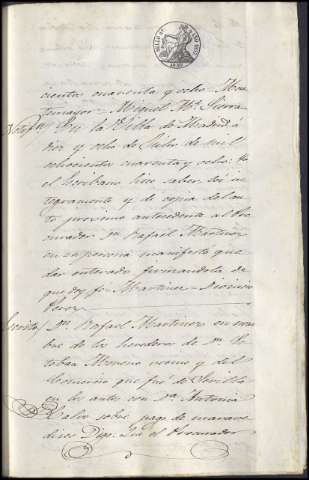 cientos cuarenta y ocho. Mon
temayor. Miguel Mª Sierra
Notifn / En la Villa de Madrid á
diez y ocho de Julio de mil
ochocientos cuarenta y ocho: Yo
el Escribano hice saber leí in
tegramente y di copia del au
to proveido antecedente al Pro
curador Dn Rafael Martinez
en su persona manifestó que
dar enterado firmandolo de
que doy fe. Martinez
Perez
Escrito / Dn Rafael Martinez en nom
bre de los herederos de Dn Es
teban Moreno vecino y del
Comercio que fué de Sevilla
en los autos con Dª Antonia
sobre pago de marave
dises Digo: Que el Procurador